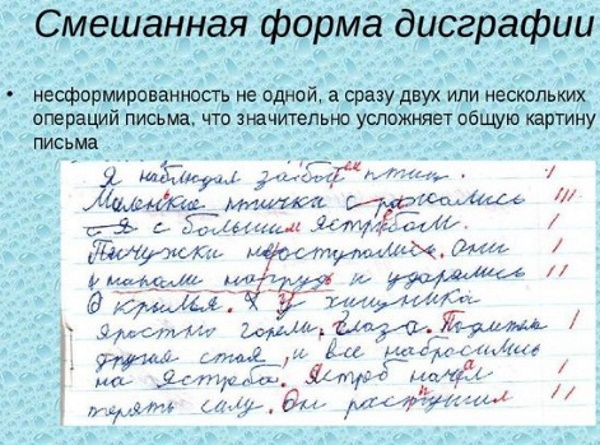 Смешанная форма дисграфии
• несформированность не одной, а сразу двух или нескольких
операций письма, что значительно усложняет общую картину
письма
Я наблюдал за бой ем птиц.
Маленькие птички с ражались
с большим ястребом.
Пичужки не оступались. Они
и ударялись
О крылья. У хищника
яростно горели глаза. Подлител
другая стая, и все набросились
на Ястреба. Ястреб начал
терять силу. Он распушил